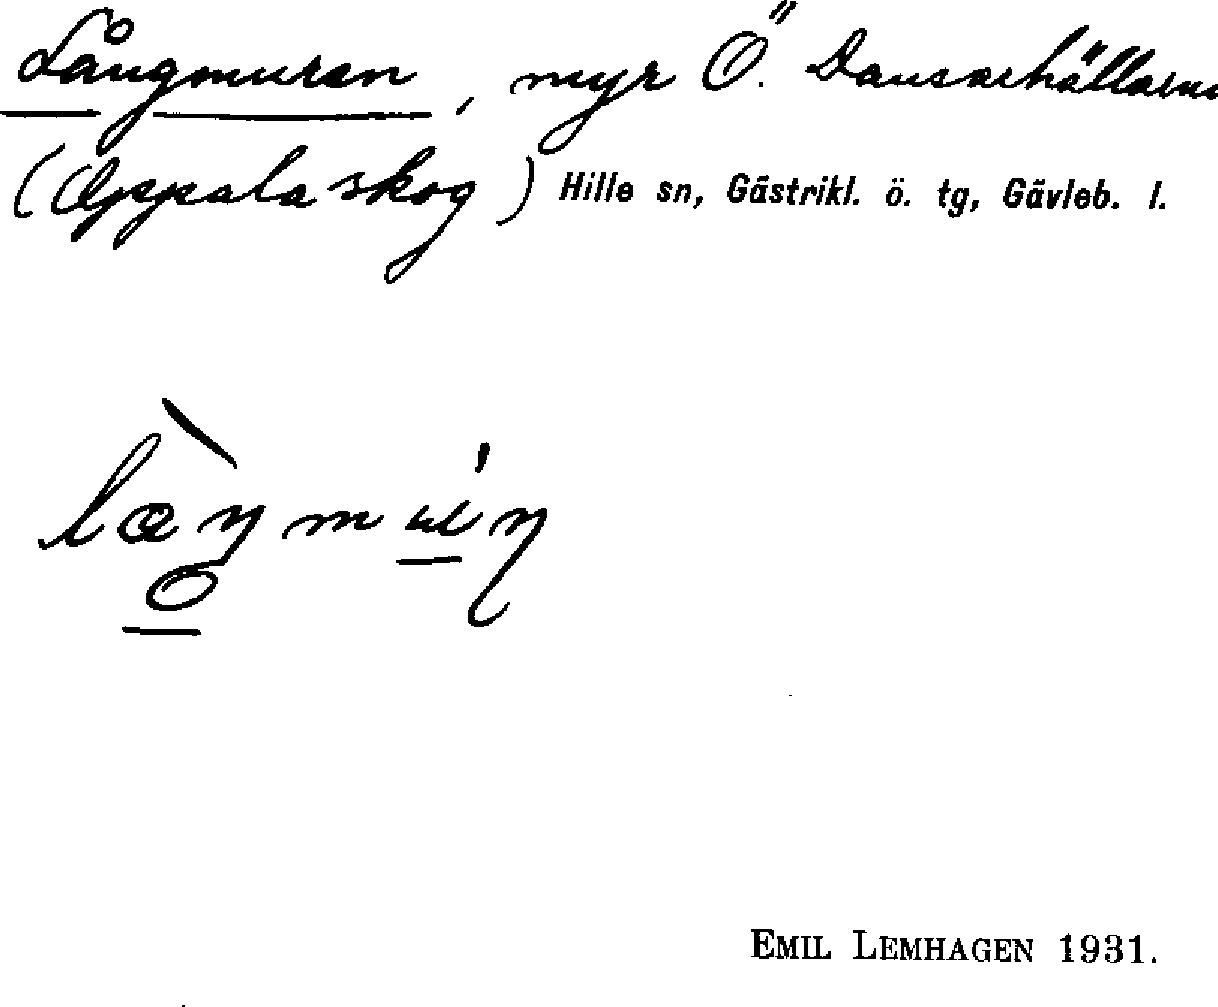 Långmuren, myr Ö. Dansarhällarna
(Oppala skog) Hille sn, Gästrikl. ö. tg, Gävleb. l.
EMIL LEMHAGEN 1931.